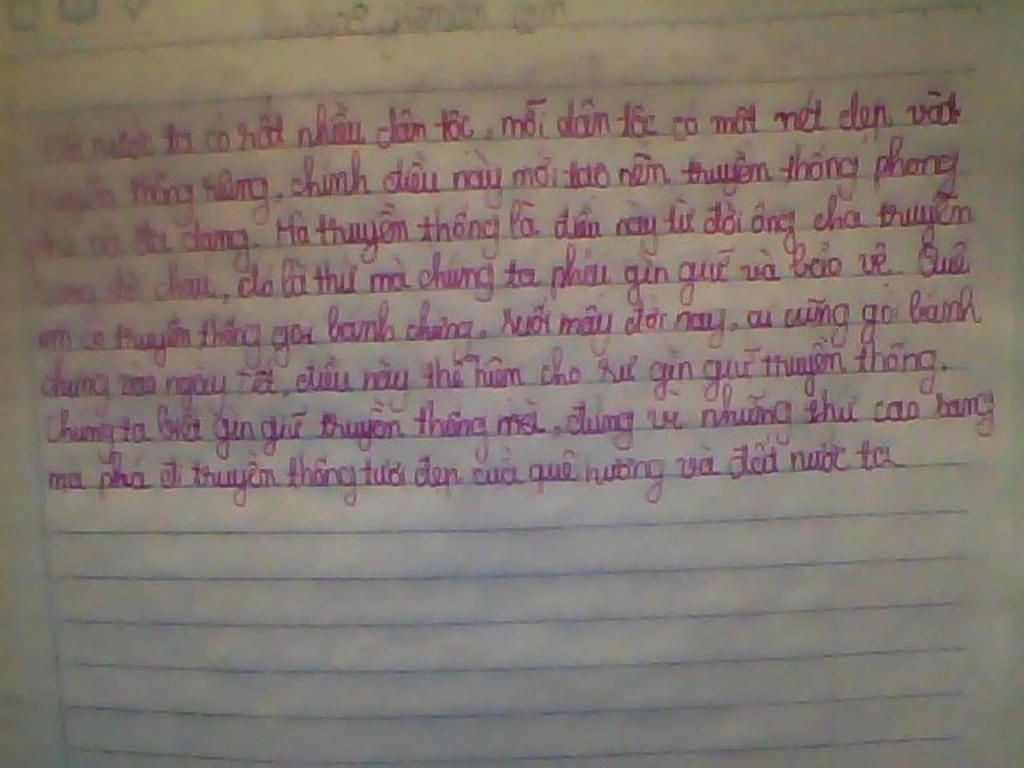 nước ta có rất nhiều dân tộc, mỗi dân tộc có một nét đẹp và
truyền thống riêng, chính điều này mới tạo nên truyền thống phong
phú và đa dạng. Mà truyền thống là điều này từ đời ông cha truyền
cháu, đó là thứ mà chúng ta phải gìn giữ và bảo vệ. Quê
em có truyền thống gói bánh chưng, suốt mấy đời nay, ai cũng gói bánh
chưng vào ngày Tết, điều này thể hiện cho sự gìn giữ truyền thống.
Chúng ta biết gìn giữ truyền thống mà, đừng vì những thứ cao sang
mà phá đi truyền thống tươi đẹp của quê hương và đất nước ta.